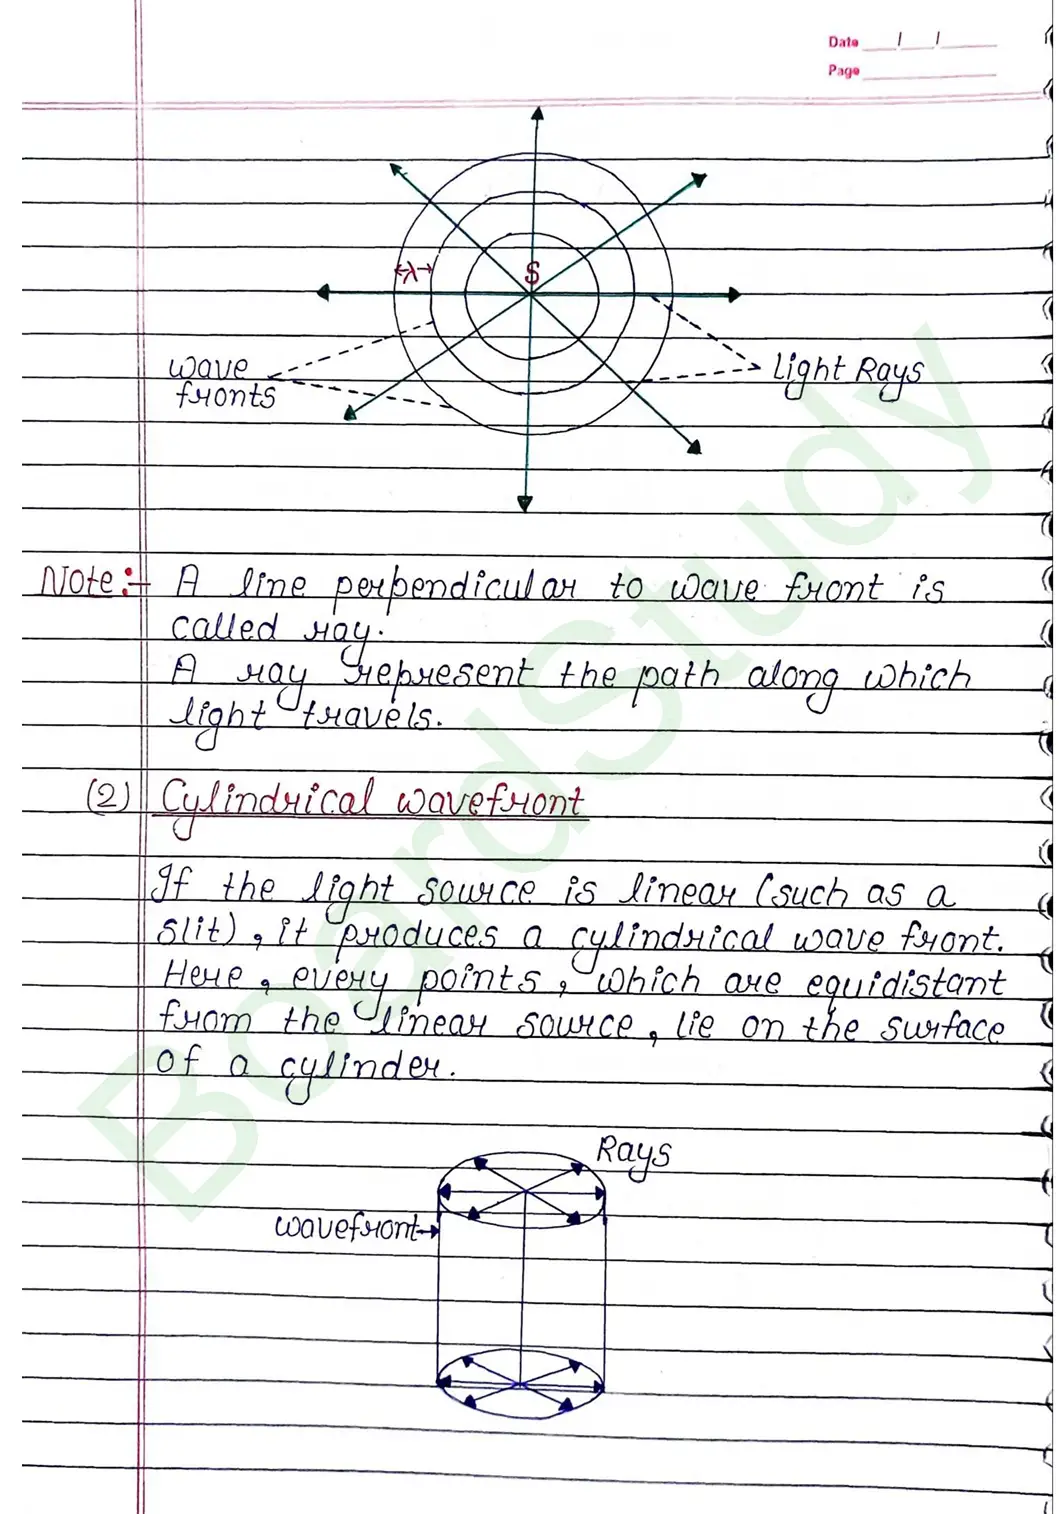 Date / /
Page
S
←λ→
wave
fronts
light Rays
Note:- A line perpendicular to wave front is
called ray.
A ray represent the path along which
light travels.
(2) Cylindrical wavefront
If the light source is linear (such as a
slit), it produces a cylindrical wave front.
Here, every points, which are equidistant
from the linear source, lie on the surface
of a cylinder.
Rays
wavefront
BoardStudy